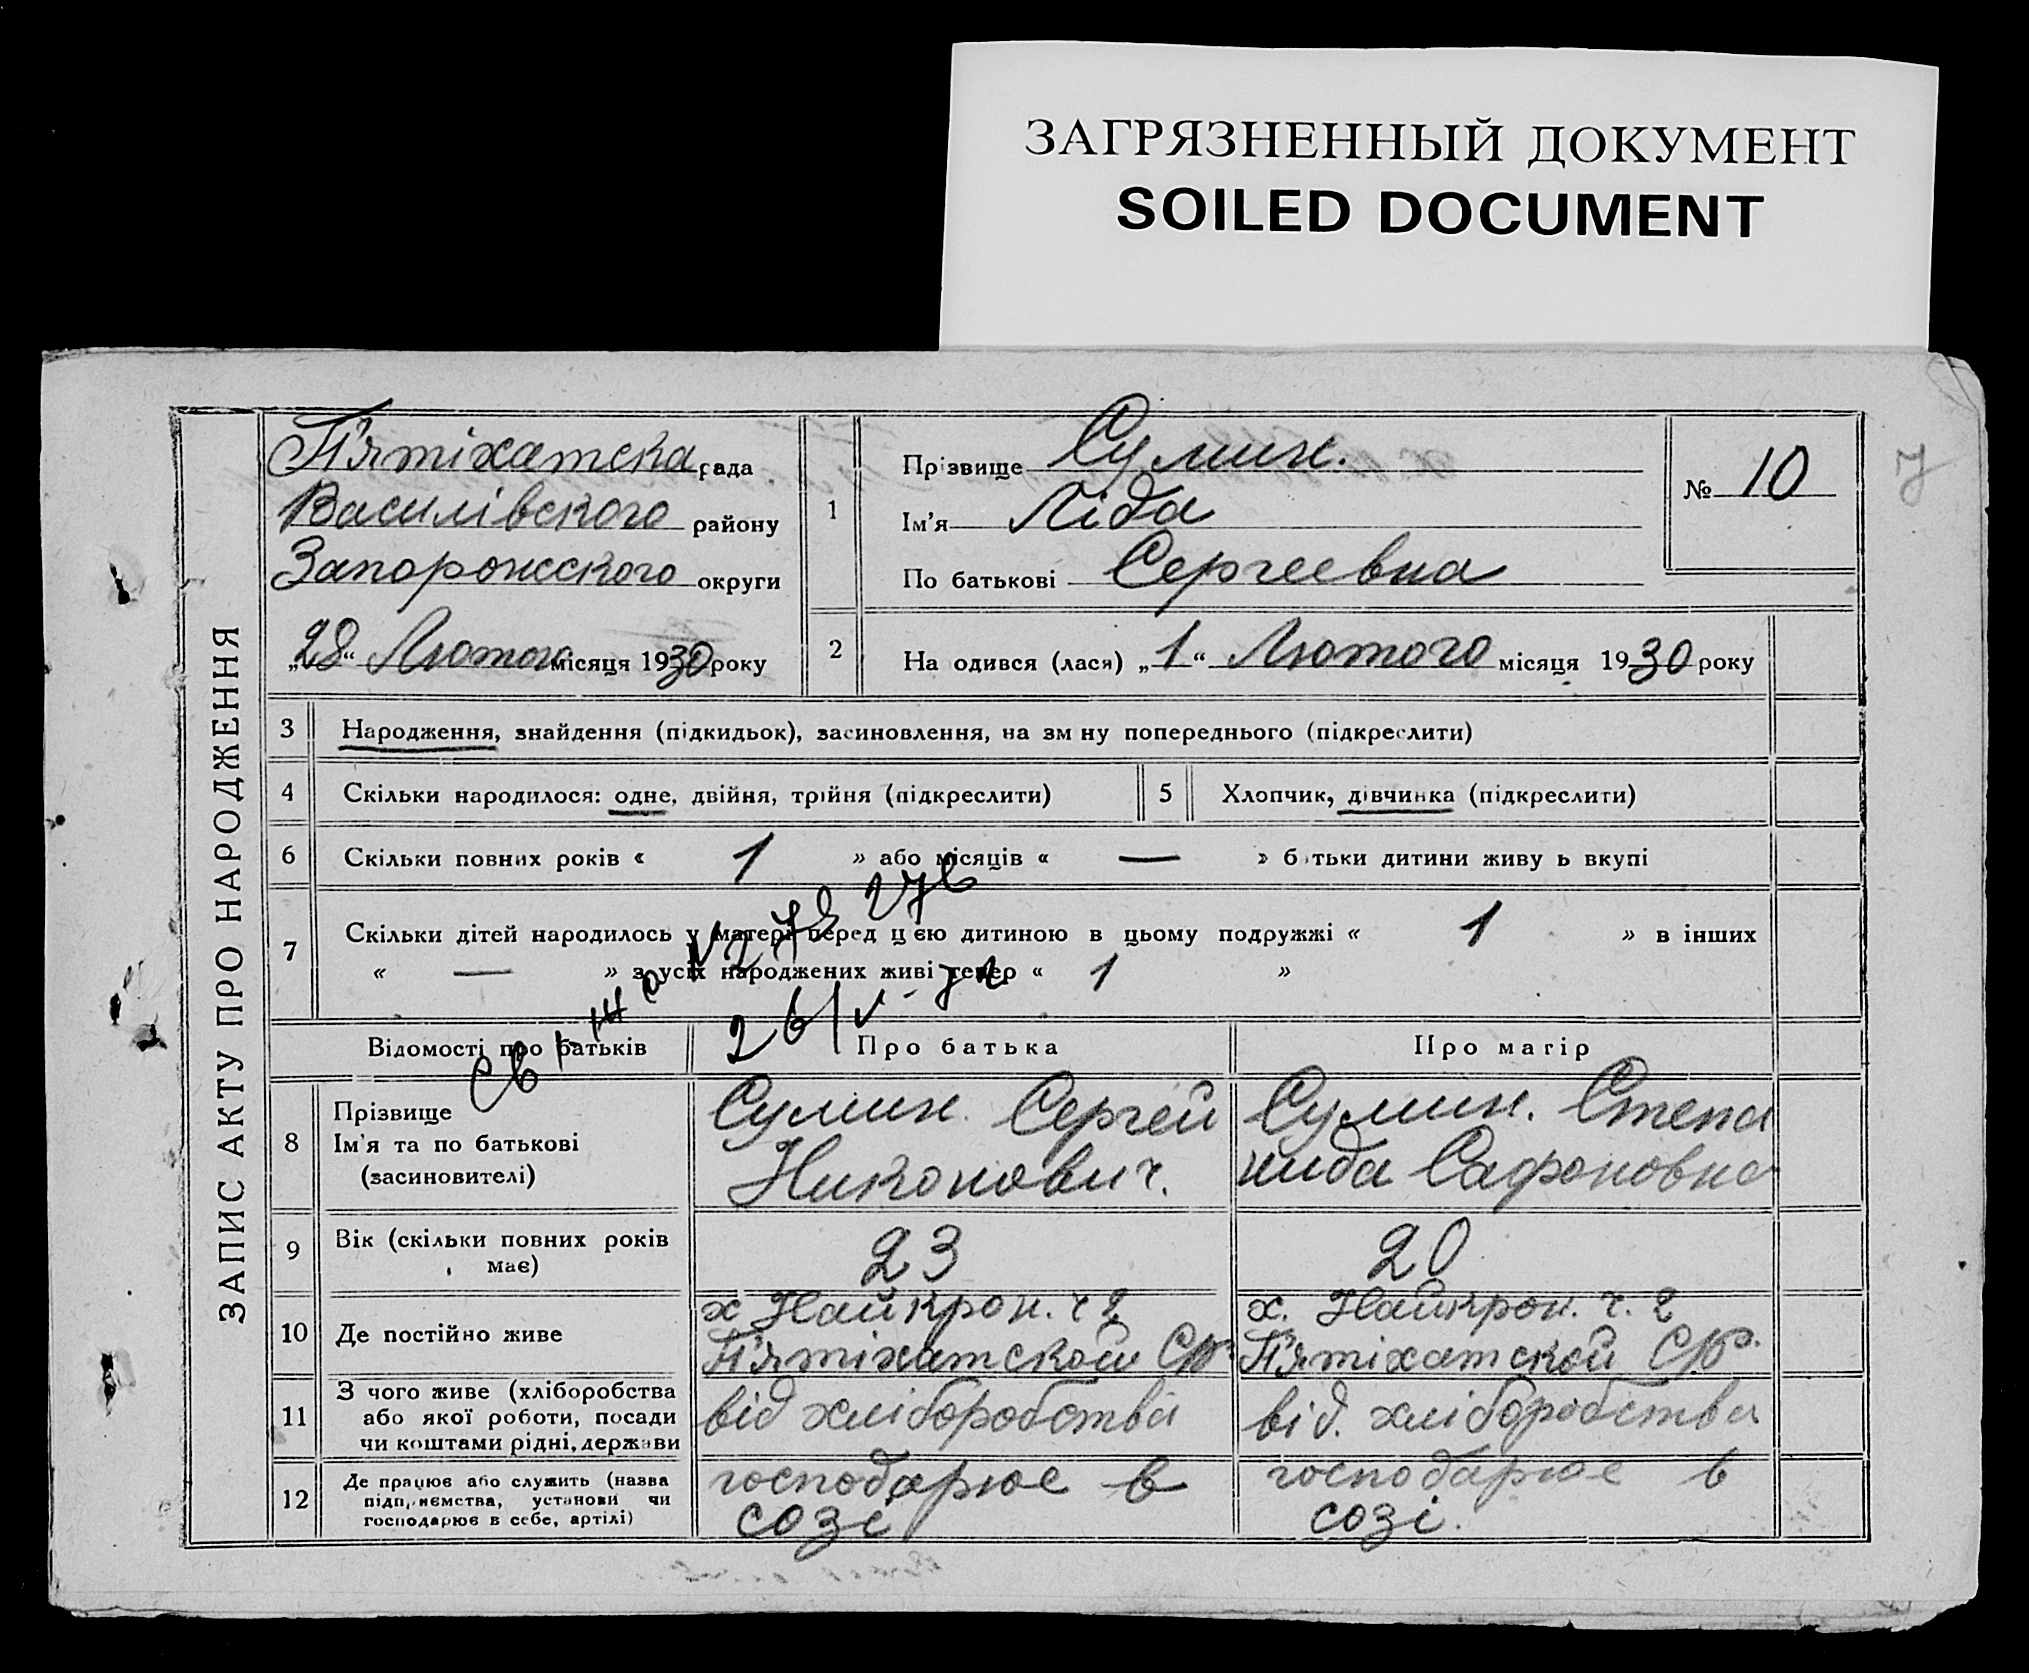 ЗАГРЯЗНЕННЫЙ ДОКУМЕНТ
SOILED DOCUMENT
ЗАПИС АКТУ ПРО НАРОДЖЕННЯ
П'ятіхатска рада
Василівского району
Запорожского округи
„28“ Лютого місяця 1930 року
1
Прізвище Сумин.
Ім'я Ліда
По батькові Сергеевна
№ 10
2
На одився (лася) „1“ Лютого місяця 1930 року
3 Народження, знайдення (підкидьок), засиновлення, на зм ну попереднього (підкреслити)
4 Скільки народилося: одне, двійня, трійня (підкреслити)
5 Хлопчик, дівчинка (підкреслити)
6 Скільки повних років « 1 » або місяців « — » б тьки дитини живу ь вкупі
7 Скільки дітей народилось у матері перед цією дитиною в цьому подружжі « 1 » в інших
« — » з усіх народжених живі тепер « 1 »
Відомості про батьків Про батька Про матір
8
Прізвище
Ім'я та по батькові
(засиновителі)
Сумин. Сергей
Никонович.
Сумин. Степа
нида Сафроновна
9
Вік (скільки повних років
має)
23
20
10 Де постійно живе
х Найкрон. ч 2
П'ятіхатской СР.
х. Найкрон. ч. 2
П'ятіхатской СР.
11
З чого живе (хліборобства
або якої роботи, посади
чи коштами рідні, держави
від хліборобства
від. хліборобства
12
Де працює або служить (назва
підприємства, установи чи
господарює в себе, артілі)
господарює в
созі
господарює в
созі.